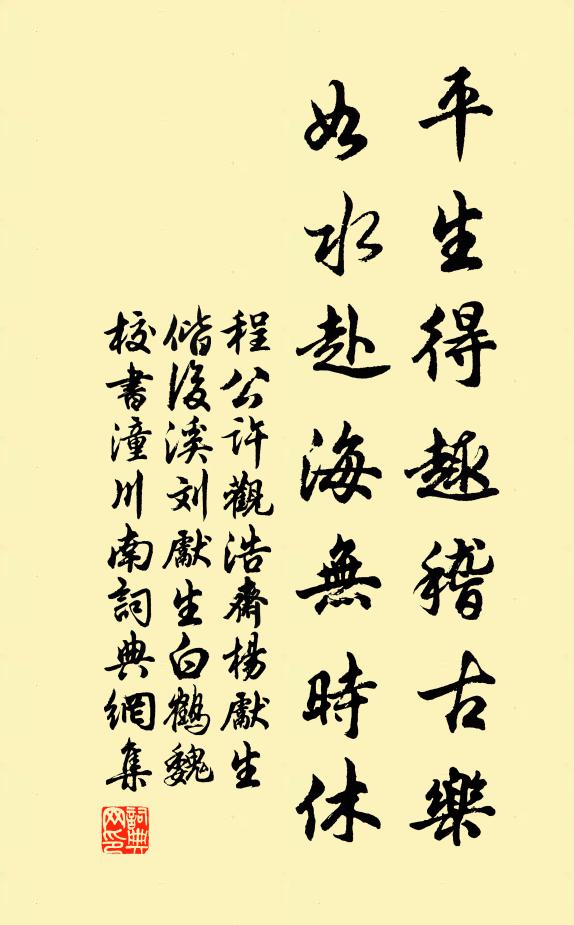 平生得趣稽古樂
如水赴海無時休
程公許觀浩齋楊獻生
偕後溪刘獻生白鶴魏
校書潼川南詞典網集
詞典
网印